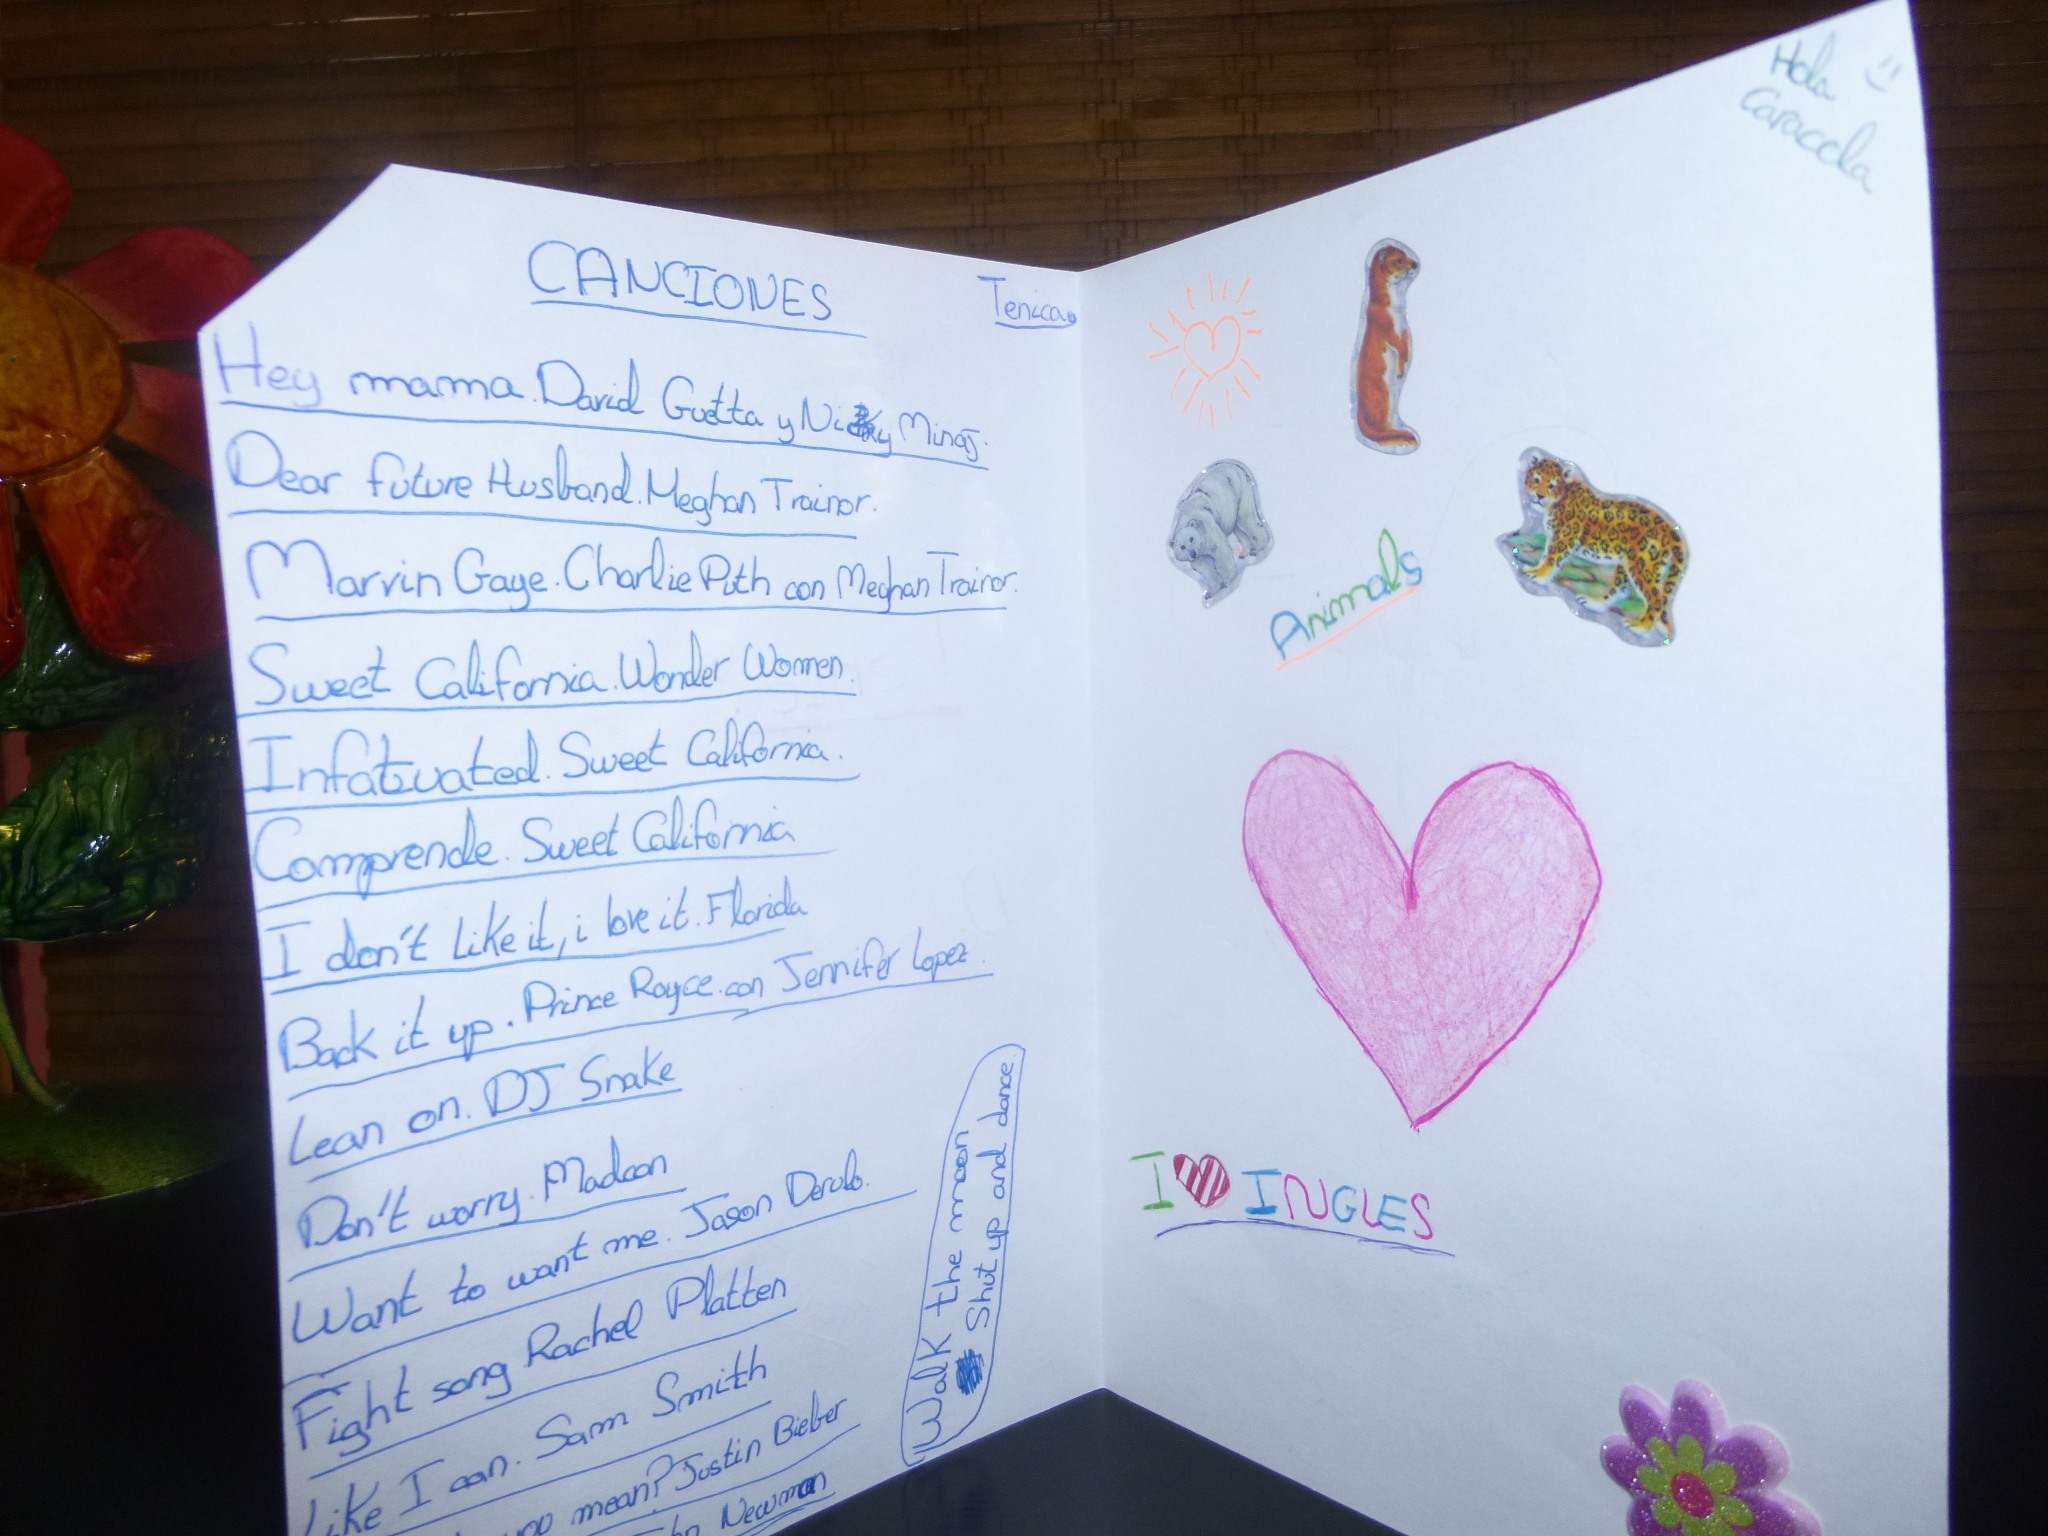 CANCIONES
Tenica.
Hey mama. David Guetta y Nicky Minaj.
Dear future Husband. Meghan Trainor.
Marvin Gaye. Charlie Puth con Meghan Trainor.
Sweet California. Wonder Women.
Infatuated. Sweet California.
Comprende. Sweet California
I don't like it, i love it. Florida
Back it up. Prince Royce. con Jennifer Lopez.
Lean on. DJ Snake
Don't worry. Madcon
Want to want me. Jason Derulo.
Fight song Rachel Platten
Like I can. Sam Smith
you mean? Justin Bieber
Newman
Walk the moon
Shut up and dance.
Hola
Caracola
Animals
I INGLES